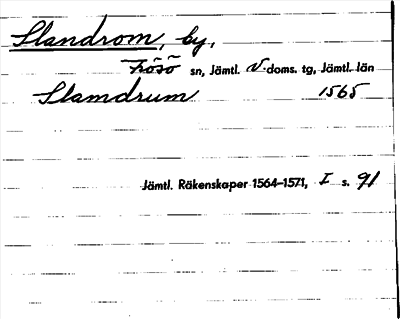 Slandrom, by,
Frösö sn, Jämtl. V. doms. tg, Jämtl. län
Slamdrum 1565
Jämtl. Räkenskaper 1564–1571, I s. 91